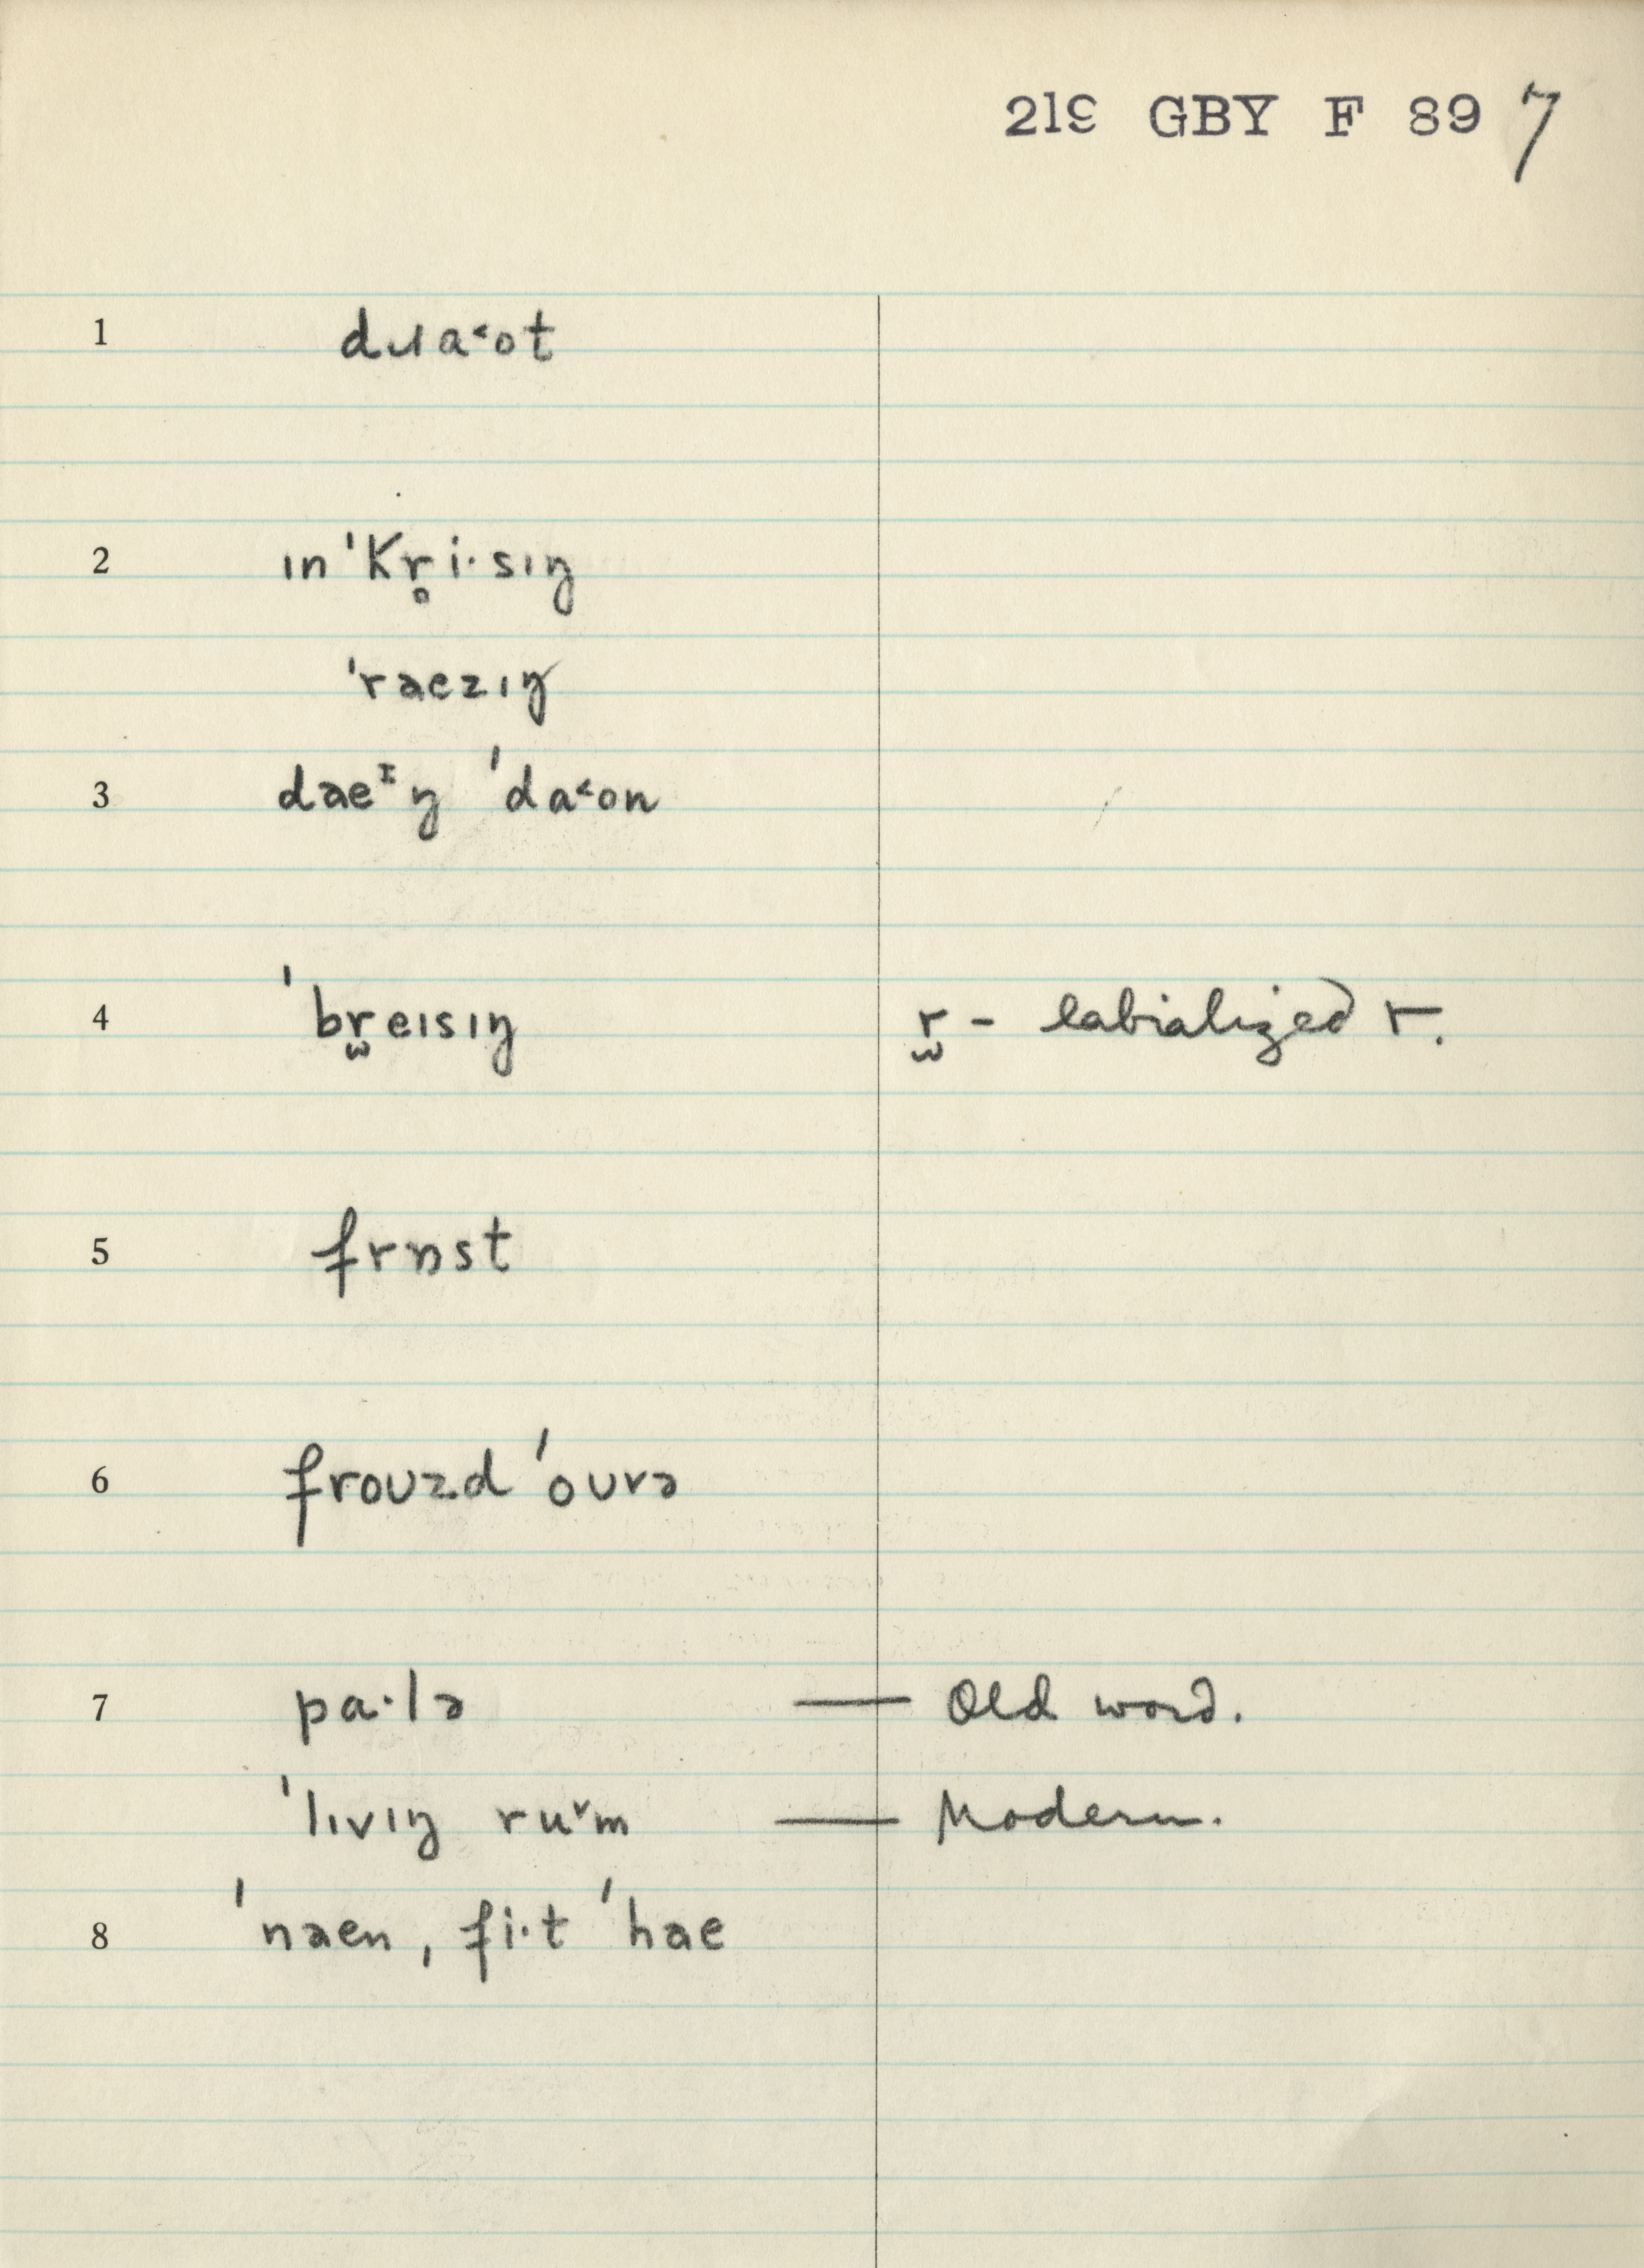 219 GBY F 89 7
1 dɹaˑ˂ot
2 ɪn 'kr̥i·sɪŋ
'ræzɪŋ
3 dæᶦŋ 'da˂on
4 'br̫eɪsɪŋ r̫ - labialized r.
5 frɒst
6 froʊzd 'oʊvə
7 pa·lə — Old word.
'lɪvɪŋ ruᵛm — Modern.
8 'næn, fi·t 'hæ